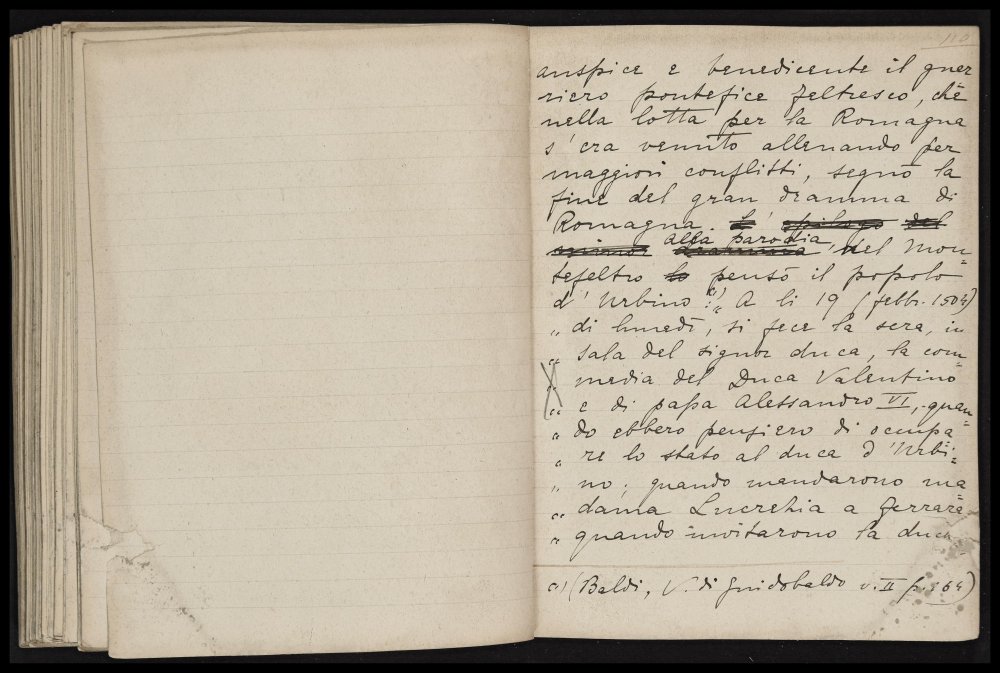 110
auspice e benedicente il guer
riero pontefice feltresco, che
nella lotta per la Romagna
s'era venuto allenando per
maggiori conflitti, segnò la
fine del gran dramma di
Romagna. L' epilogo del
dramma alla parodia, del Mon=
tefeltro lo pensò il popolo
d'Urbino: (1) „ A li 19 (febbr. 1504)
„ di lunedì, si fece la sera, in
„ sala del signor duca, la com=
„ media del Duca Valentino
„ e di papa Alessandro VI, quan=
„ do ebbero pensiero di occupa=
„ re lo stato al duca d'Urbi=
„ no; quando mandarono ma=
„ dama Lucrehia a Ferrara
„ quando invitarono la duch=
(1) (Baldi, V. di Guidobaldo v. II p. 164)